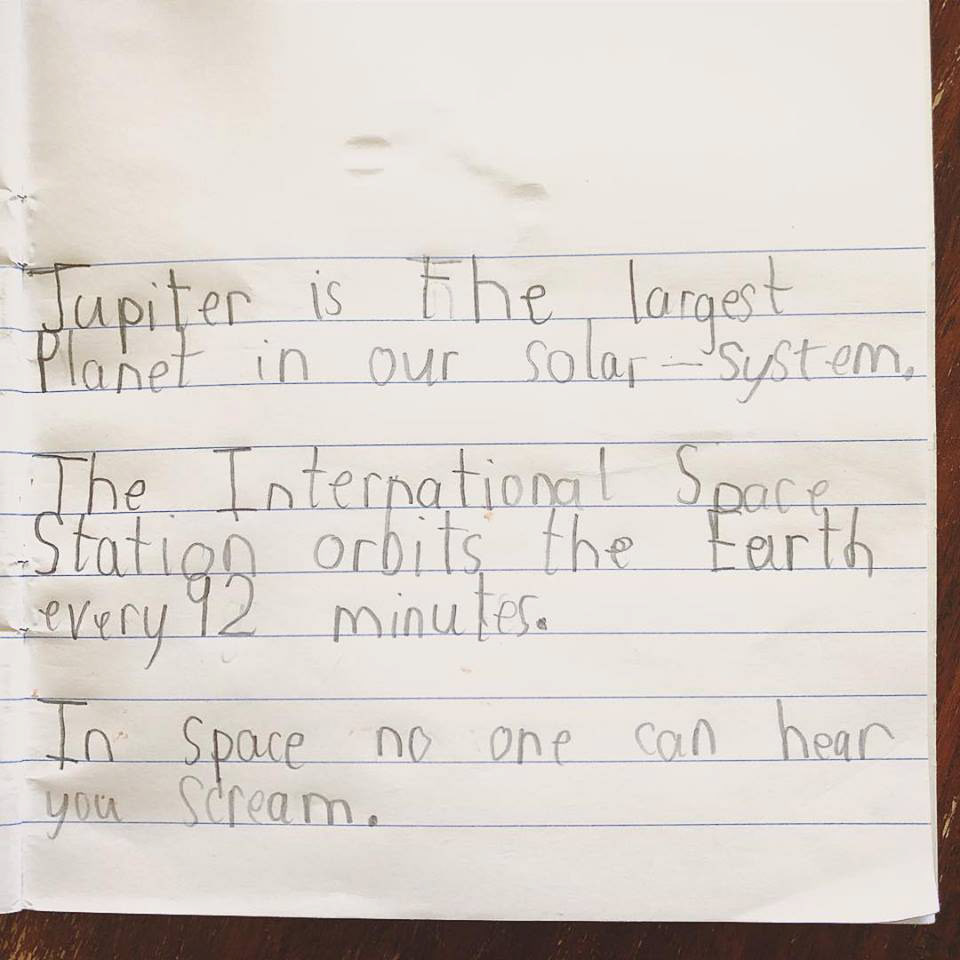 Jupiter is the largest
Planet in our solar-system.
The International Space
Station orbits the Earth
every 92 minutes.
In space no one can hear
you scream.